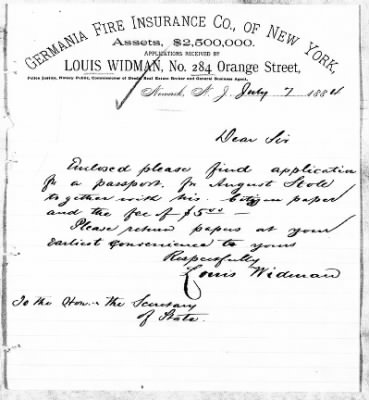 GERMANIA FIRE INSURANCE CO., OF NEW YORK,
Assets, $2,500,000.
APPLICATIONS RECEIVED BY
LOUIS WIDMAN, No. 284 Orange Street,
Police Justice, Notary Public, Commissioner of Deeds, Real Estate Broker and General Business Agent,
Newark, N. J. July 7 1884
Dear Sir
Enclosed please find application
for a passport. for August Stole
together with his. Citizen paper
and the fee of $5.00 —
Please return papers at your
earliest convenience to yours
Respectfully
Louis Widman
To the Hon. the Secretary
of State.